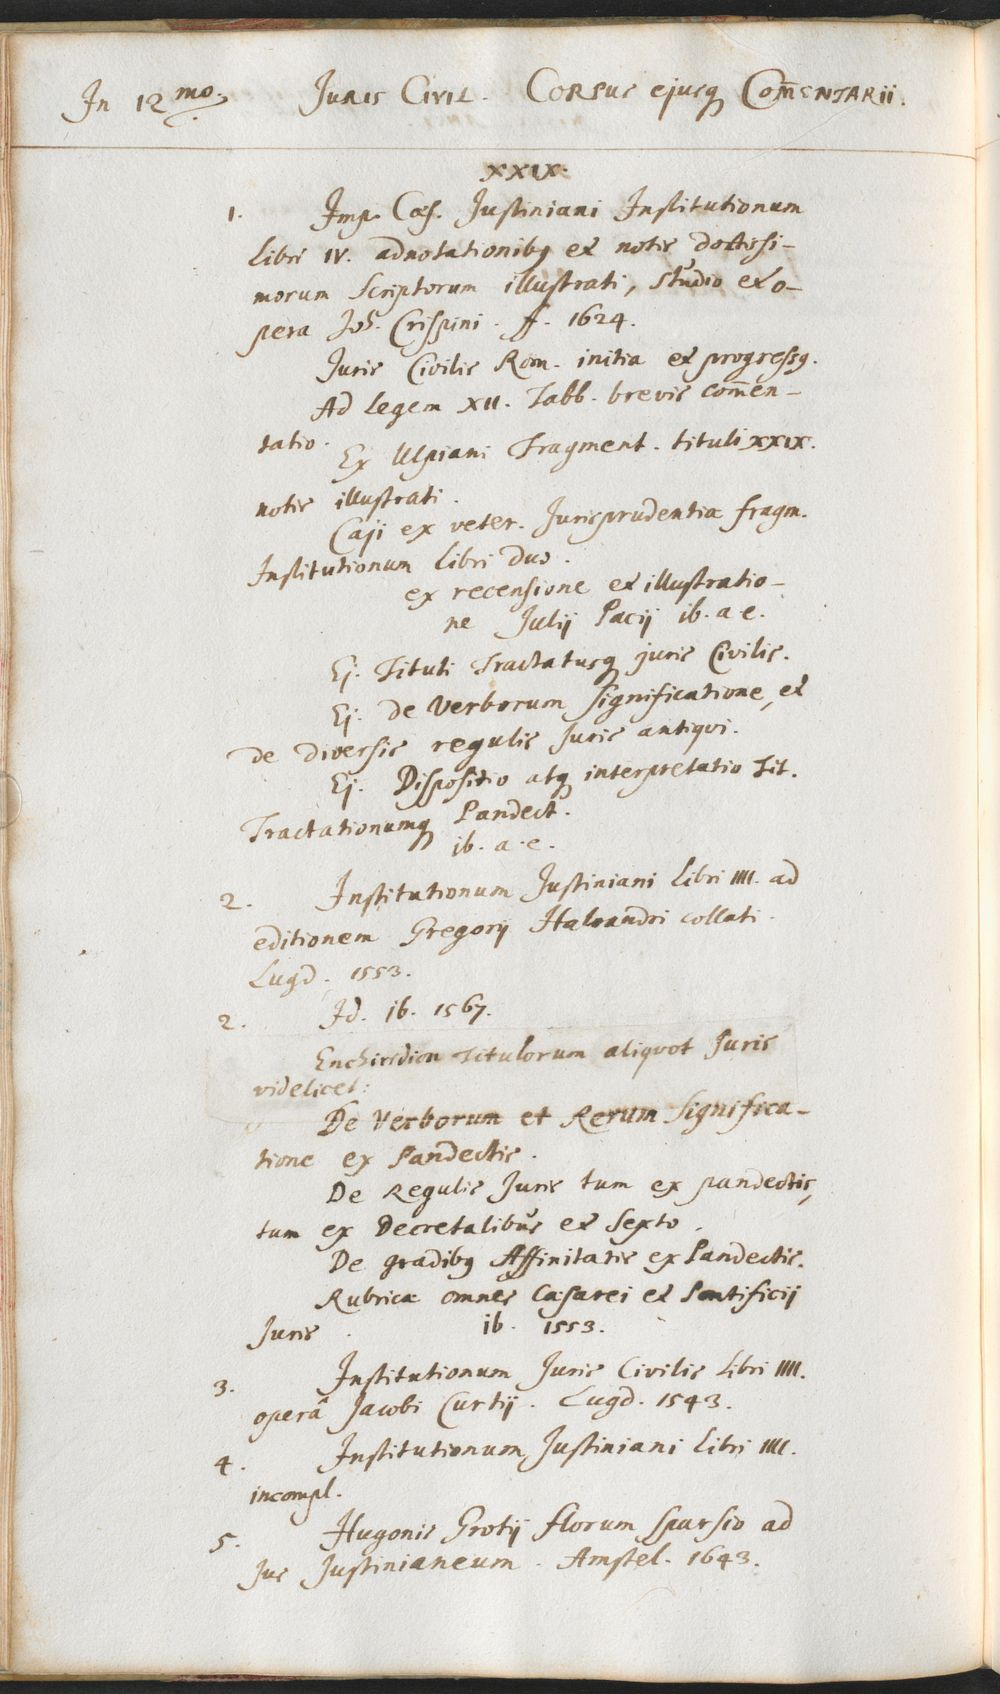 In 12mo. Juris Civil. Corpus ejusq Com̄entarii.
XXIX.
1. Imp. Cæs. Justiniani Institutionum
libri IV. adnotationibq et notis doctissi-
morum Scriptorum illustrati, studio et o-
pera Joh. Crispini. ff. 1624.
Juris Civilis Rom. initia et progressq.
Ad legem XII. Tabb. brevis com̄en-
tatio.
Ex Ulpiani Fragment. tituli XXIX.
notis illustrati.
Caji ex veter. Jurisprudentiæ fragm.
Institutionum libri duo.
ex recensione et illustratio-
ne Julij Pacij ib. a. e.
Ej. Tituli Tractatusq juris Civilis.
Ej. de Verborum significatione, et
de diversis regulis Juris antiqui.
Ej. Dispositio atq interpretatio Tit.
Tractationumq Pandect.
ib. a. e.
2. Institutionum Justiniani libri IIII. ad
editionem Gregorij Haloandri collati.
Lugd. 1553.
2. Id. ib. 1567.
Enchiridion Titulorum aliquot Juris
videlicet:
De Verborum et Rerum Significa-
tione ex Pandectis.
De Regulis Juris tum ex pandectis,
tum ex Decretalibus et Sexto.
De gradibq Affinitatis ex Pandectis.
Rubricæ omnes Cæsarei et Pontificij
Juris. ib. 1553.
3. Institutionum Juris Civilis libri IIII.
operâ Jacobi Curtij. Lugd. 1543.
4. Institutionum Justiniani libri IIII.
incompl.
5. Hugonis Grotij florum sparsio ad
Jus Justinianeum. Amstel. 1643.